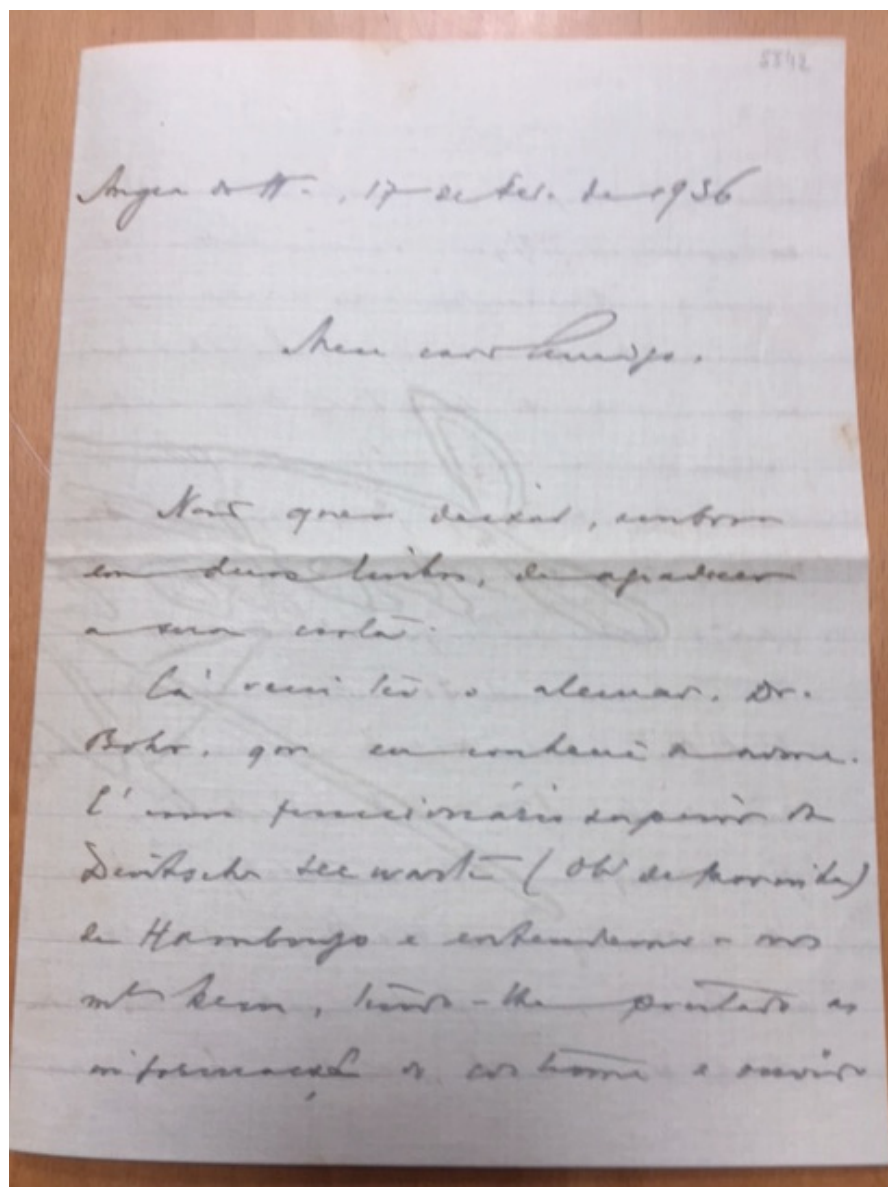 5542
Angra do H., 17 de Fev. de 1936
Meu caro Amigo.
Não quero deixar, embora
em duas linhas, de agradecer
a sua carta.
Cá veio ter o alemão, Dr.
Bohr, que eu conhecia de nome.
É um funcionário superior da
Deutsche Seewarte (Obs. de Marinha)
de Hamburgo e entendemo-nos
mto bem, tendo-lhe prestado as
informações do costume e ouvido